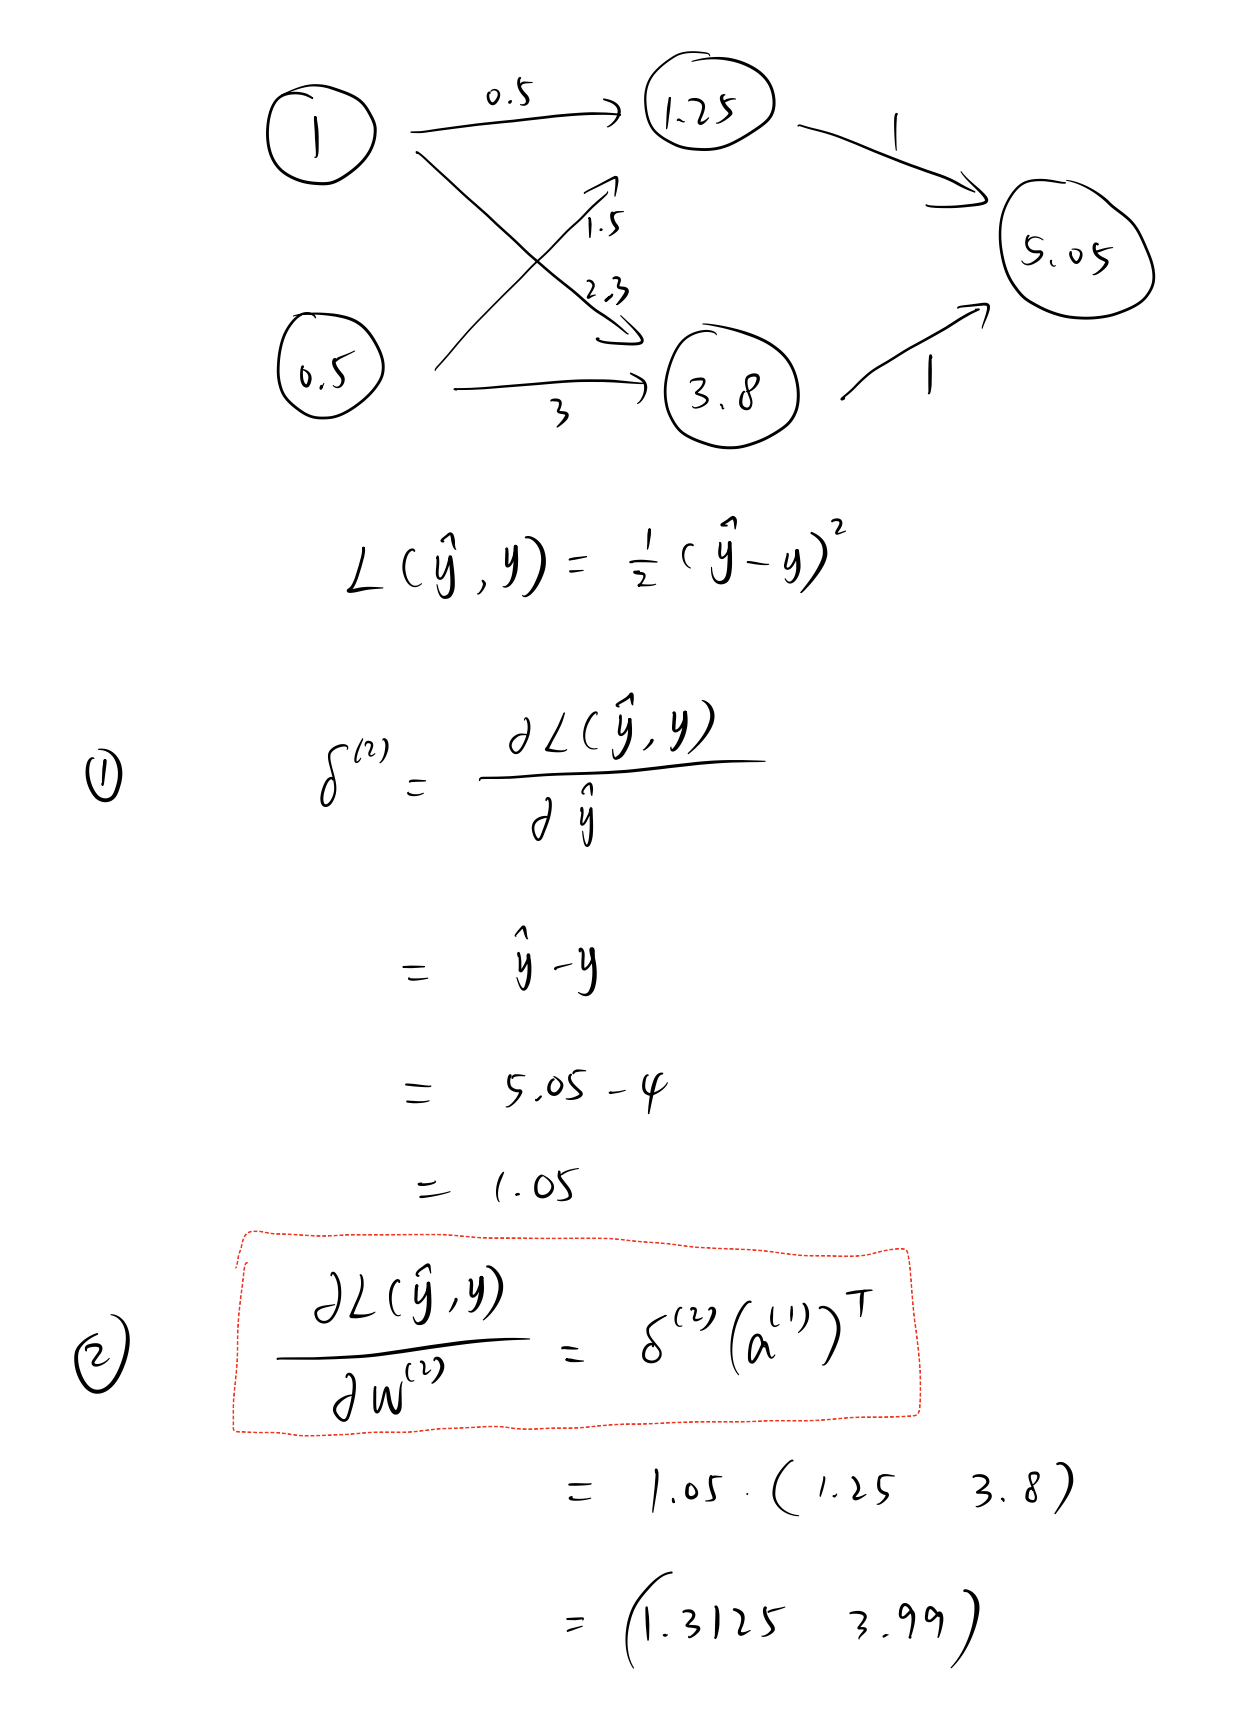 1 0.5 1.25 1
1.5
5.05
2.3
0.5 3 3.8 1
L(ŷ, y) = ½ (ŷ - y)²
① δ⁽²⁾ = ∂L(ŷ, y) / ∂ŷ
= ŷ - y
= 5.05 - 4
= 1.05
② ∂L(ŷ, y) / ∂W⁽²⁾ = δ⁽²⁾ (a⁽¹⁾)ᵀ
= 1.05 · (1.25 3.8)
= (1.3125 3.99)